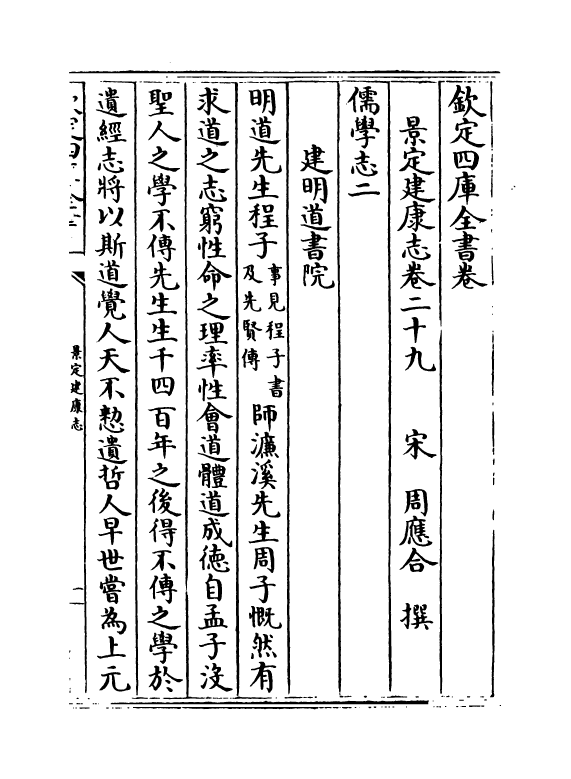 欽定四庫全書卷
景定建康志卷二十九 宋 周應合 撰
儒學志二
建明道書院
明道先生程子事見程子書及先賢傳師濂溪先生周子慨然有
求道之志窮性命之理率性會道體道成德自孟子沒
聖人之學不傳先生生千四百年之後得不傳之學於
遺經志將以斯道覺人天不憗遺哲人早世嘗為上元
景定建康志